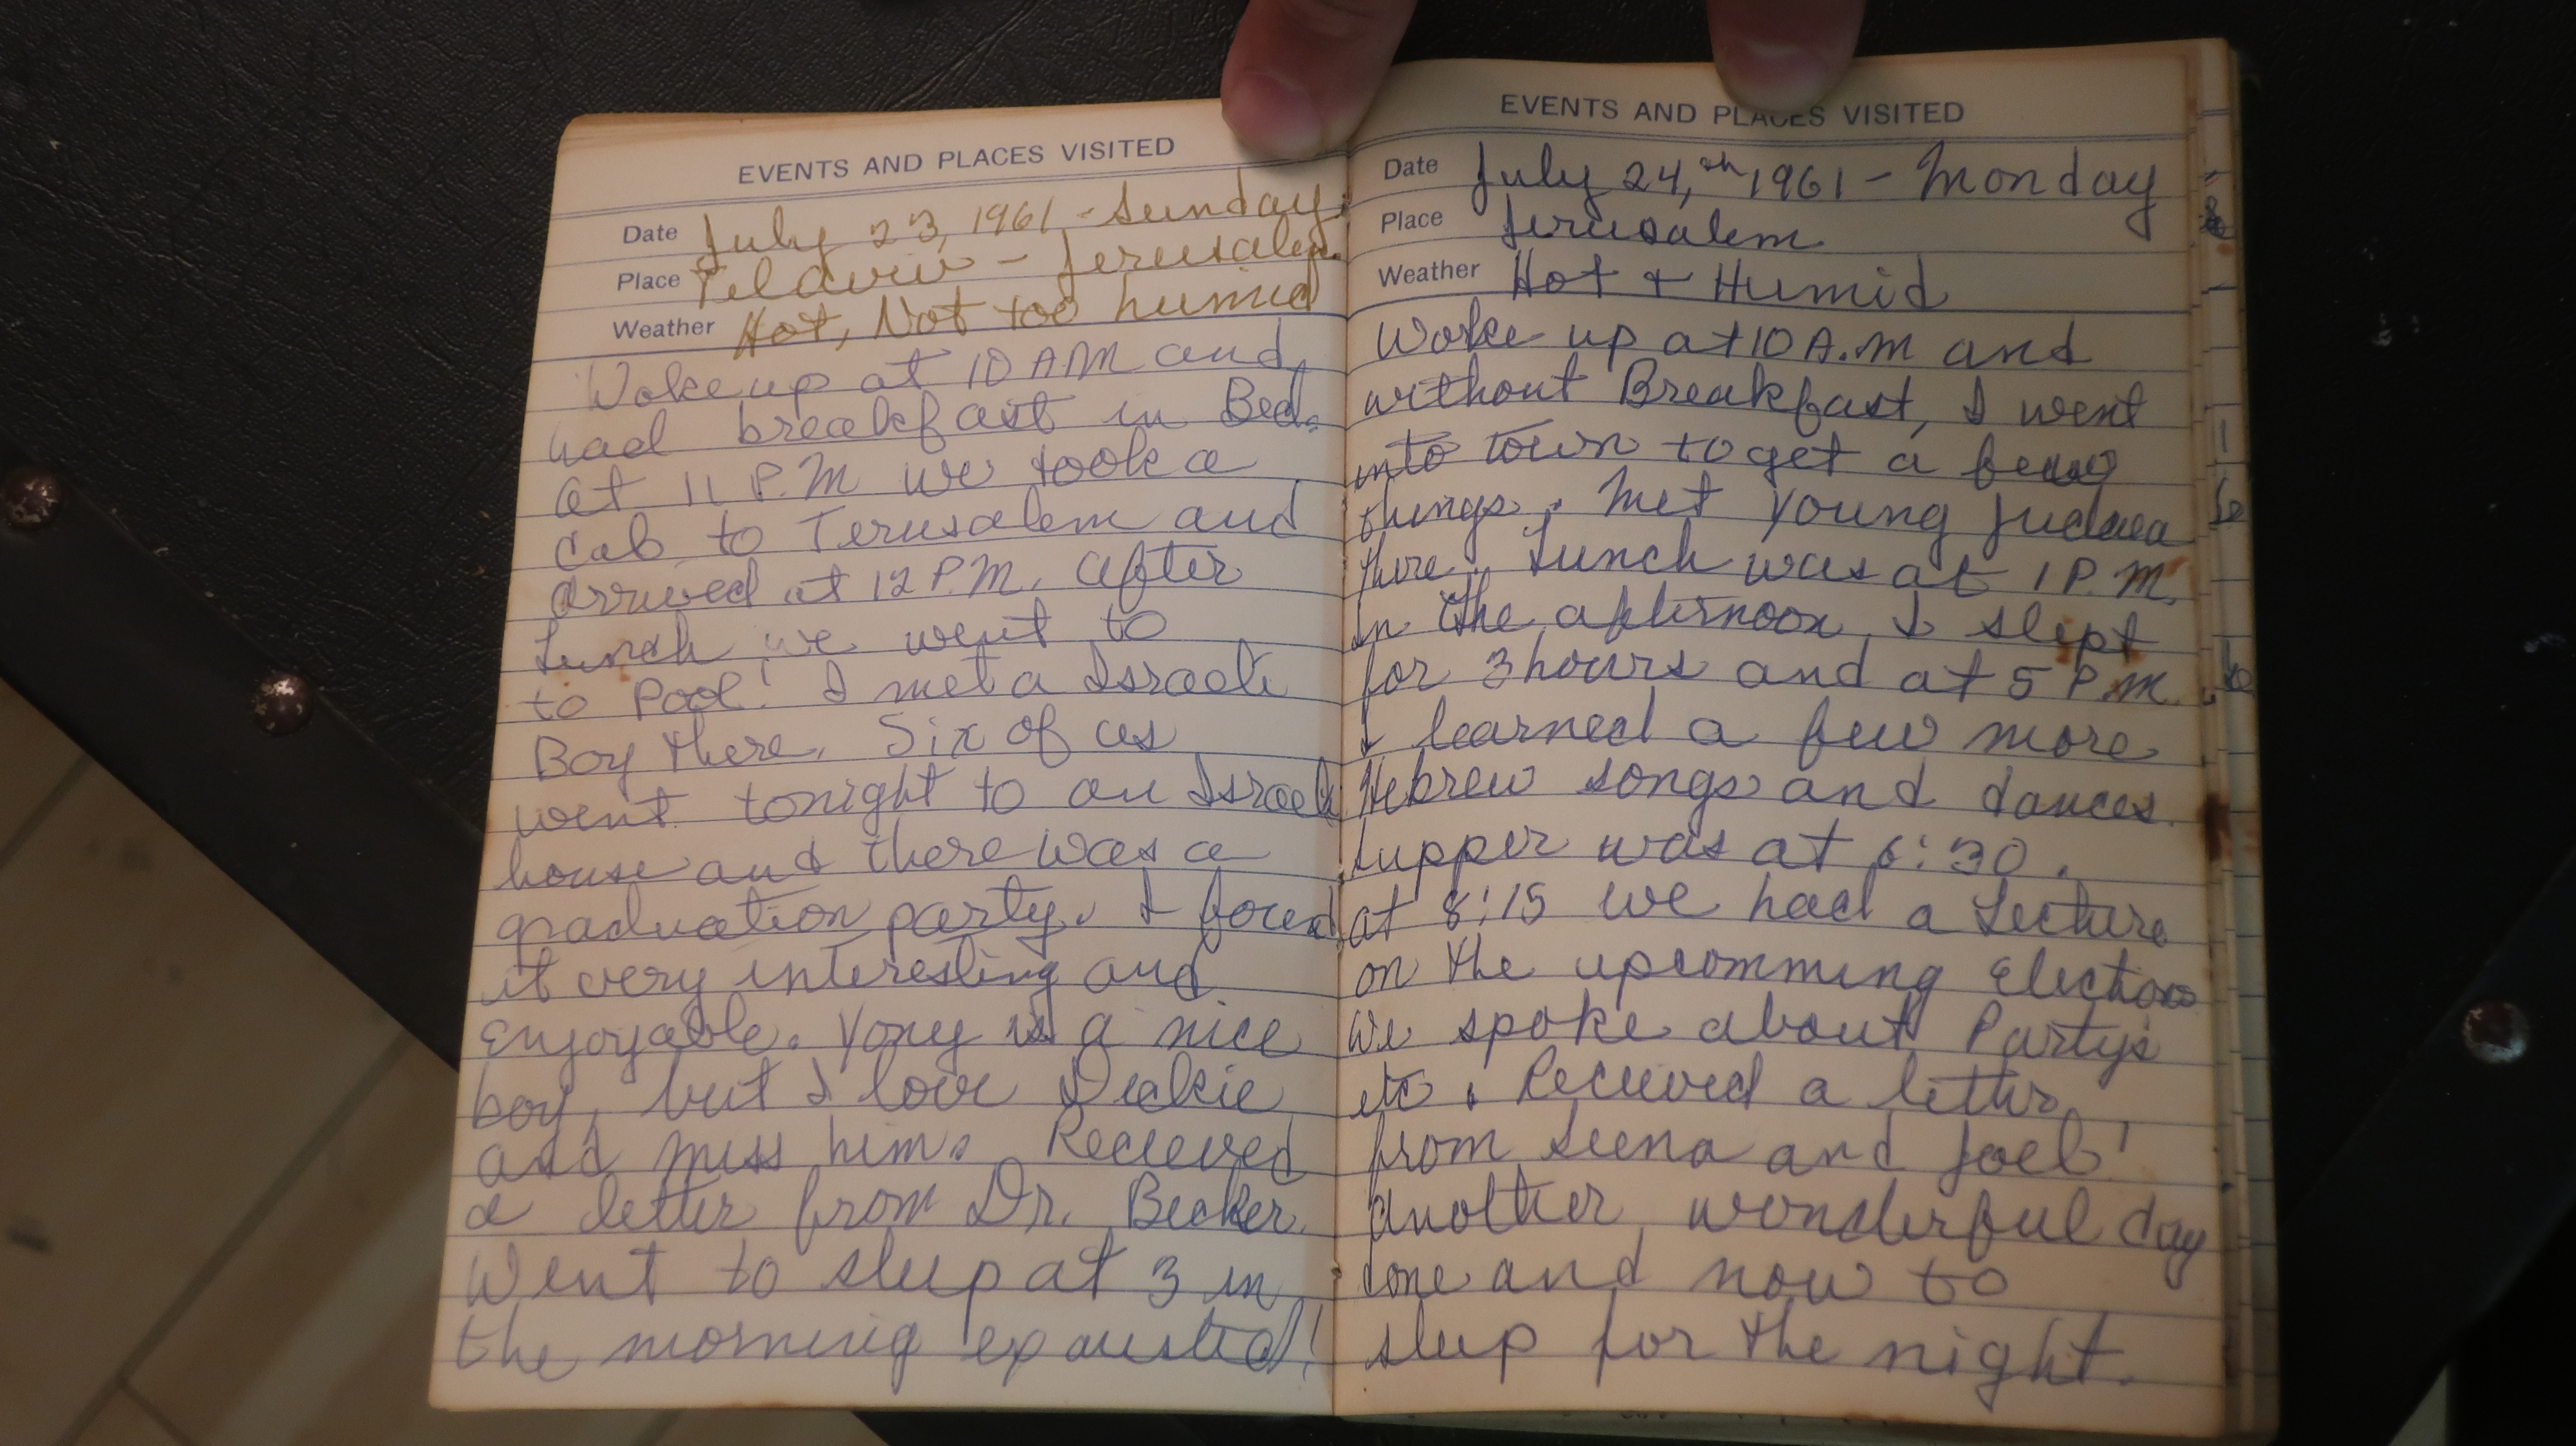 EVENTS AND PLACES VISITED
Date July 23, 1961 - Sunday
Place Telaviv - Jerusalem
Weather Hot, Not too humid
Woke up at 10 AM and
had breakfast in Bed.
at 11 P.M we took a
cab to Jerusalem and
arrived at 12 P.M. after
Lunch we went to
to Pool! I met a Israeli
Boy there. Six of us
went tonight to an Israeli
house and there was a
graduation party. I found
it very interesting and
enjoyable. Yony is a nice
boy, but I love
and miss him. Recieved
a letter from Dr. Becker.
Went to sleep at 3 in
the morning exausted!
EVENTS AND PLACES VISITED
Date July 24,th 1961 - Monday
Place Jerusalem
Weather Hot + Humid
Woke up at 10 A.M and
without Breakfast, I went
into town to get a few
things. Met Young Judaea
there. Lunch was at 1 P.M.
In the afternoon I slept
for 3 hours and at 5 P.M.
I learned a few more
Hebrew songs and dances.
Supper was at 6:30.
at 8:15 we had a Lecture
on the upcomming Elections
We spoke about Party's
etc. Recieved a letter
from Seena and Joel!
Another wonderful day
done and now to
sleep for the night.